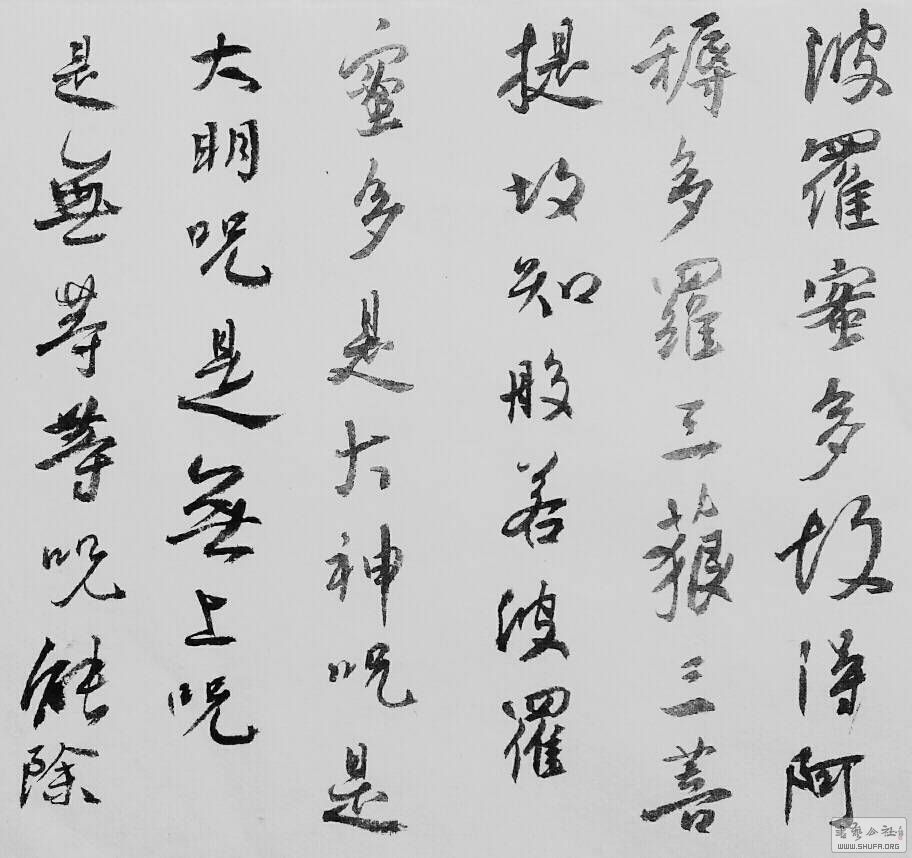 波羅蜜多故得阿
耨多羅三藐三菩
提故知般若波羅
蜜多是大神呪是
大明呪是無上呪
是無等等呪能除
書藝公社
WWW.SHUFA.ORG